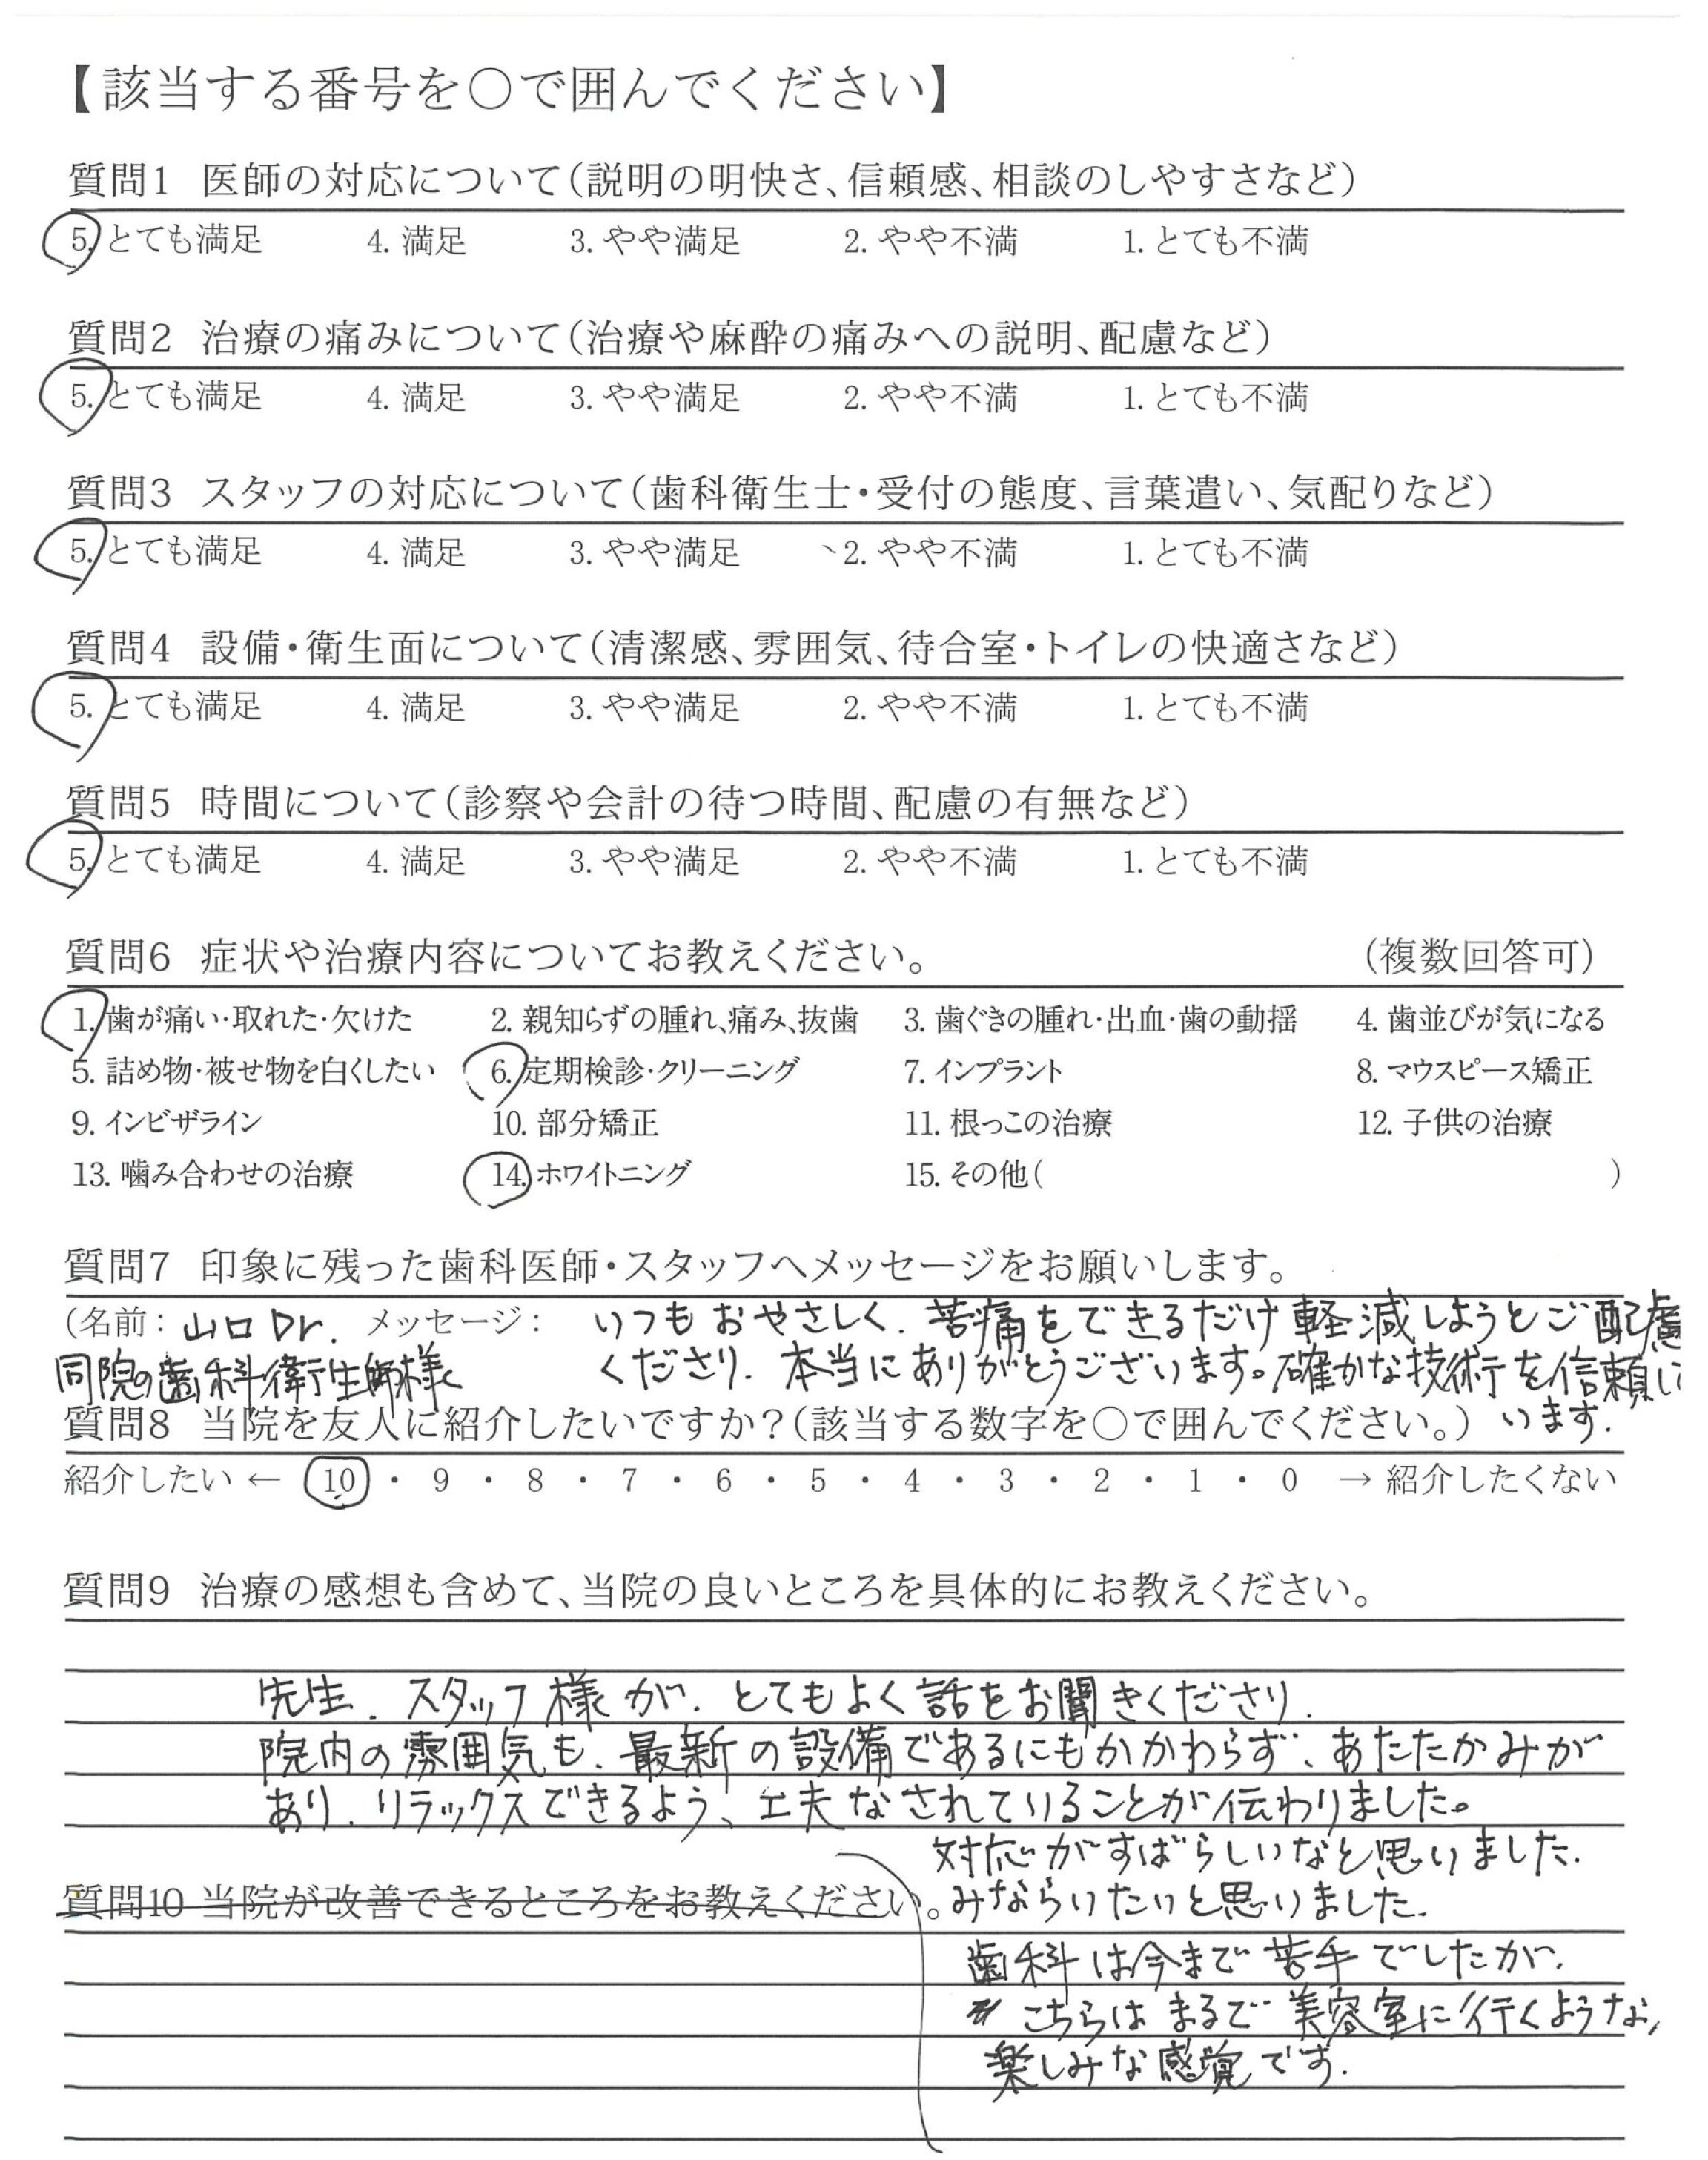 【該当する番号を○で囲んでください】
質問1 医師の対応について(説明の明快さ、信頼感、相談のしやすさなど)
5. とても満足 4. 満足 3. やや満足 2. やや不満 1. とても不満
質問2 治療の痛みについて(治療や麻酔の痛みへの説明、配慮など)
5. とても満足 4. 満足 3. やや満足 2. やや不満 1. とても不満
質問3 スタッフの対応について(歯科衛生士・受付の態度、言葉遣い、気配りなど)
5. とても満足 4. 満足 3. やや満足 2. やや不満 1. とても不満
質問4 設備・衛生面について(清潔感、雰囲気、待合室・トイレの快適さなど)
5. とても満足 4. 満足 3. やや満足 2. やや不満 1. とても不満
質問5 時間について(診察や会計の待つ時間、配慮の有無など)
5. とても満足 4. 満足 3. やや満足 2. やや不満 1. とても不満
質問6 症状や治療内容についてお教えください。 (複数回答可)
1. 歯が痛い・取れた・欠けた 2. 親知らずの腫れ、痛み、抜歯 3. 歯ぐきの腫れ・出血・歯の動揺 4. 歯並びが気になる
5. 詰め物・被せ物を白くしたい 6. 定期検診・クリーニング 7. インプラント 8. マウスピース矯正
9. インビザライン 10. 部分矯正 11. 根っこの治療 12. 子供の治療
13. 噛み合わせの治療 14. ホワイトニング 15. その他( )
質問7 印象に残った歯科医師・スタッフへメッセージをお願いします。
(名前: 山口Dr. メッセージ: いつもおやさしく、苦痛をできるだけ軽減しようとご配慮
同院の歯科衛生師様 くださり、本当にありがとうございます。確かな技術を信頼し
質問8 当院を友人に紹介したいですか?(該当する数字を○で囲んでください。) います.
紹介したい ← 10 ・ 9 ・ 8 ・ 7 ・ 6 ・ 5 ・ 4 ・ 3 ・ 2 ・ 1 ・ 0 → 紹介したくない
質問9 治療の感想も含めて、当院の良いところを具体的にお教えください。
先生、スタッフ様が、とてもよく話をお聞きくださり、
院内の雰囲気も、最新の設備であるにもかかわらず、あたたかみが
あり、リラックスできるよう、工夫なされていることが伝わりました。
対応がすばらしいなと思いました.
質問10 当院が改善できるところをお教えください。 みならいたいと思いました.
歯科は今まで苦手でしたが、
こちらはまるで美容室に行くような、
楽しみな感覚です.